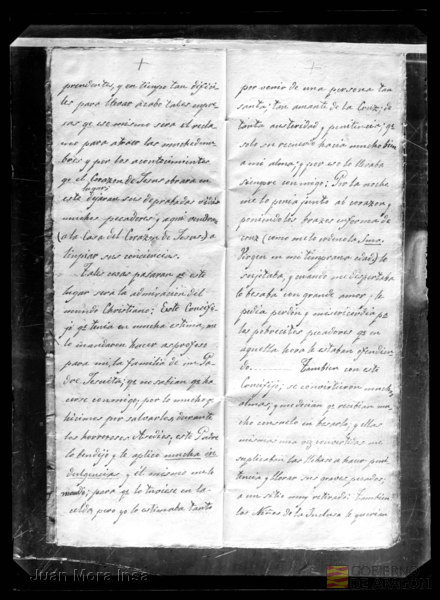 prendentes, y en tiempo tan dificí-
les para llevar acabo tales empre-
sas qe ese mismo será el recla-
mo para atraer las muchedum-
bres y por los acontecimientos
qe el Corazon de Jesus obrara en
este lugar; dejaran sus depravados
muchos pecadores; aqui vendran
(a la Casa del Corazon de Jesus) a
limpiar sus conciencias.
Tales cosas pasaran qe este
lugar será la admiracion del
mundo Christiano: Este Crucifi-
jo qe tenia en mucha estima, me
lo mandaron hacer aspròfeso
para mi, la familia de un Pa-
dre Jesuita; qe no sabian qe ha-
cerse conmigo, por lo mucho qe
hicimos por salvarlos durante
los horrorosos dias, este Padre
lo bendijo y le aplicó muchas in-
dulgencias, y él mismo me lo
mandó; para qe lo tuviese en la
celda, pero yo lo estimaba tanto
por venir de una persona tan
santa; tan amante de la Cruz; de
tanta austeridad, y penitencia; qe
solo su recuerdo hacia mucho bien
a mi alma; y por eso le llevaba
siempre conmigo; Por la noche
me lo ponia junto al corazon,
poniendo los brazos en forma de
cruz (como me lo ordenó la Sma.
Virgen en mi temprana edad) lo
sujetaba, y cuando me despertaba
lo besaba con grande amor, y le
pedia perdon y misericordia pa
los pobrecitos pecadores qe en
aquella hora le estaban ofendien-
do. Tambien con este
Crucifijo, se convirtieron muchas
almas, y me decian qe recibian mu-
cho consuelo en besarlo, y ellas
mismas una vez convertidas me
suplicaban las llevase a hacer peni-
tencia, y llorar sus graves pecados,
a un sitio muy retirado: Tambien
las Niñas de la Inclusa lo querian
Juan Mora Insa
GOBIERNO
DE ARAGON